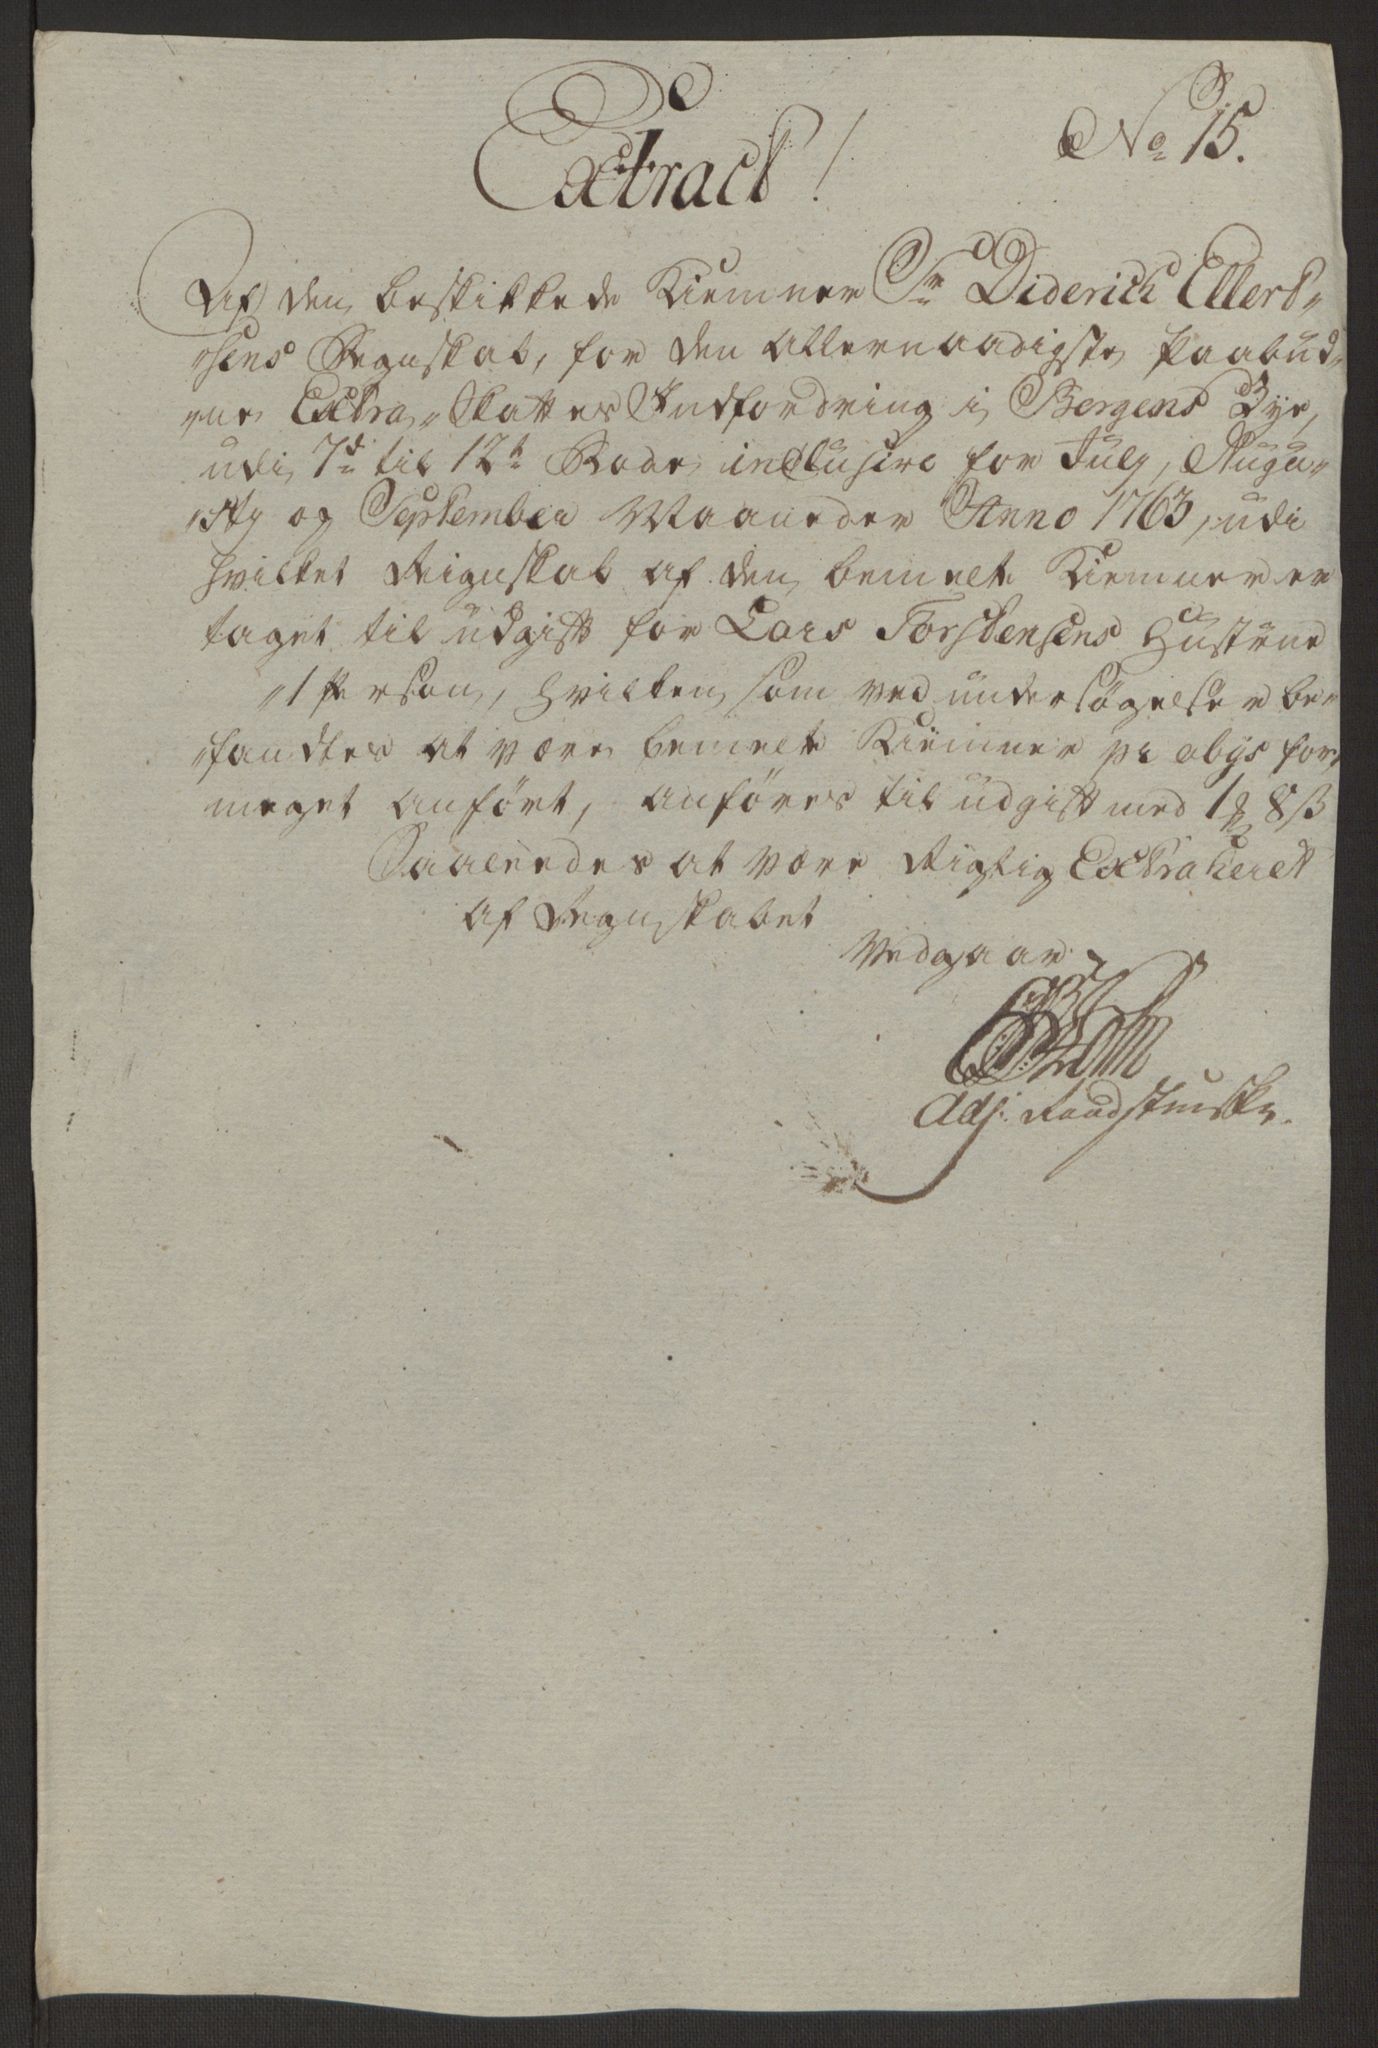 No 15.
Extract!
Af den beskikkede Kiemner Sr Diderich Ellert-
sens Regnskab, for den allernaadigste paabud-
ne Extra-Skattes Indfordring i Bergens Bye,
udi 7de til 12te Rode inclusive for July, Augu-
sty og September Maaneder Anno 1763, udi
hvilket Reignskab af den bemelte Kiemner er
taget til udgift for Lars Torstensens Hustrue
1 Person, hvilken som ved undersøgelse er be-
fandtes at være bemelte Kiemner pr abys for
meget anført, anføres til udgift med 1 rdr 8 ß
Saaledes at være Rigtig Extraheret
af Regnskabet
Vedgaar
Adj: Raadstueskr.